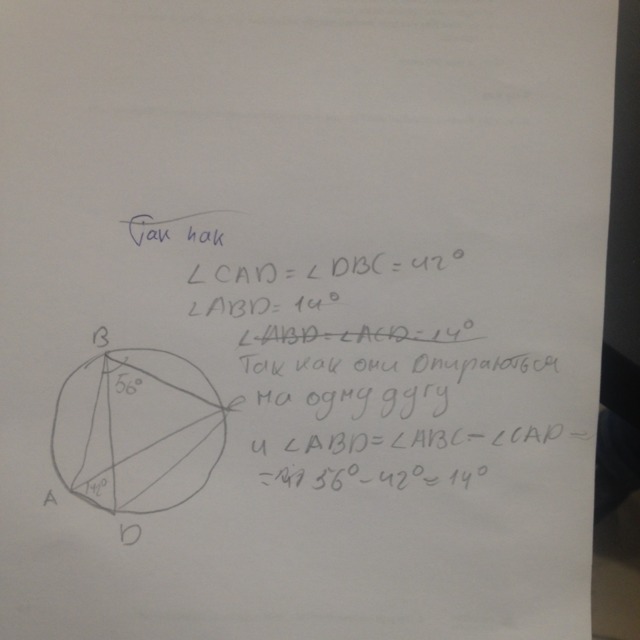 Так как
∠CAD = ∠DBC = 42°
∠ABD = 14°
∠ABD = ∠ACD = 14°
Так как они опираються
на одну дугу
и ∠ABD = ∠ABC - ∠CAD =
= 56° - 42° = 14°
B
56°
C
A
42°
D